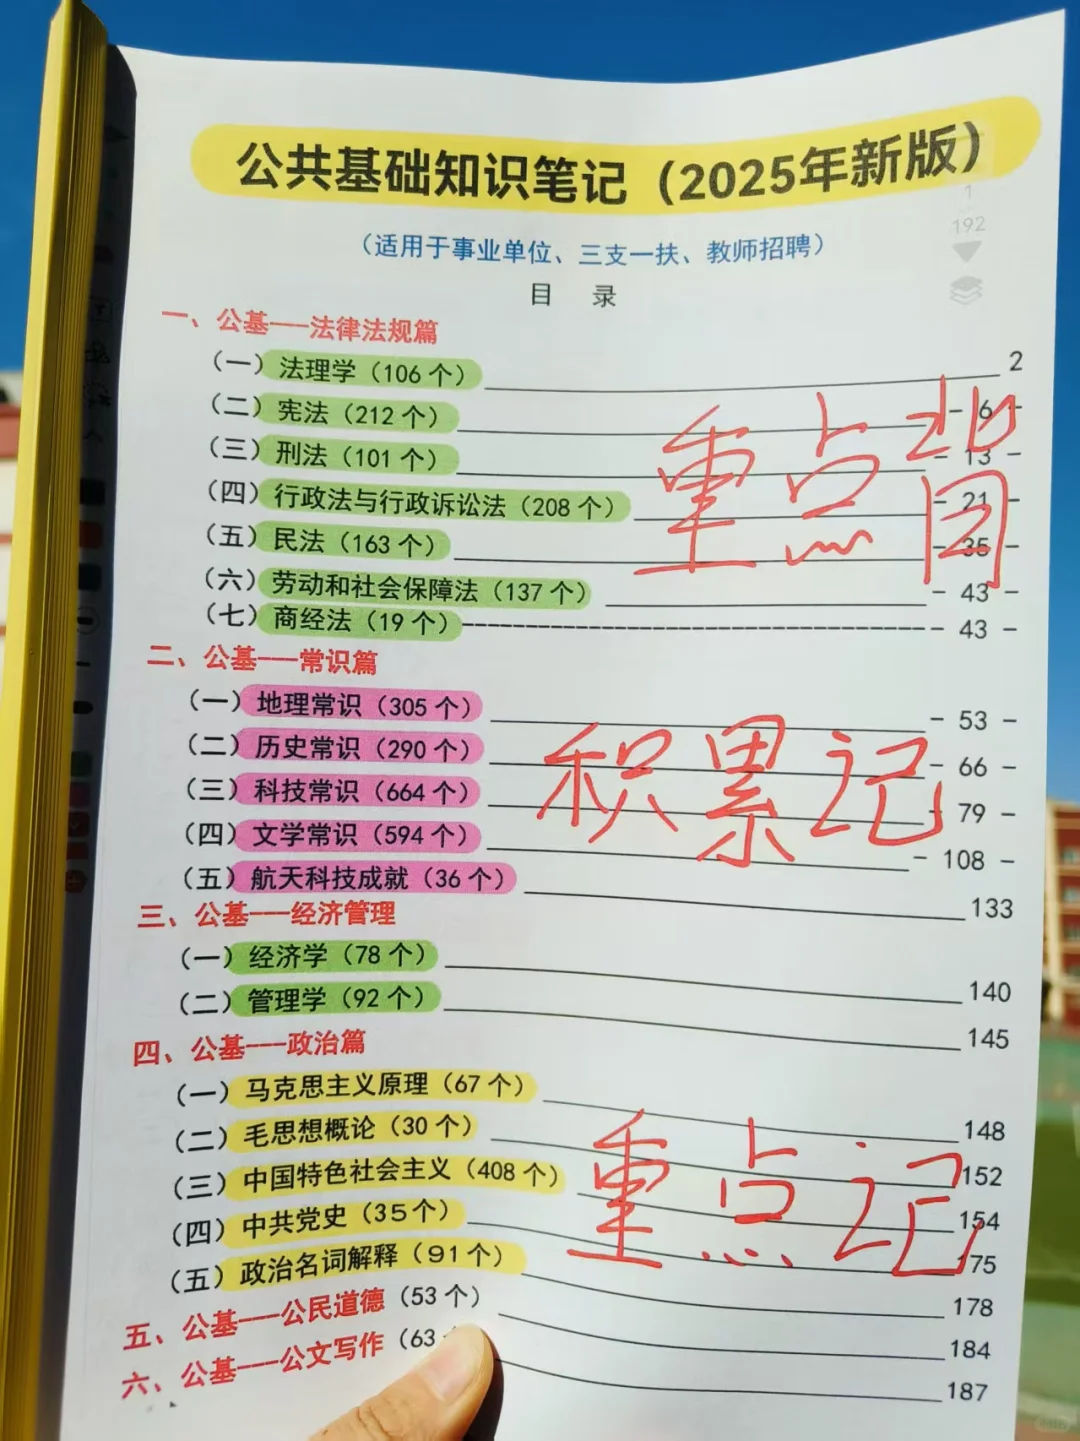 公共基础知识笔记（2025年新版）
1
192
（适用于事业单位、三支一扶、教师招聘）
目 录
一、公基——法律法规篇
（一）法理学（106 个） 2
（二）宪法（212 个） - 6 -
（三）刑法（101 个） - 13 -
（四）行政法与行政诉讼法（208 个） - 21 -
（五）民法（163 个） - 35 -
（六）劳动和社会保障法（137 个） - 43 -
（七）商经法（19 个） - 43 -
重点背
二、公基——常识篇
（一）地理常识（305 个） - 53 -
（二）历史常识（290 个） - 66 -
（三）科技常识（664 个） - 79 -
（四）文学常识（594 个） - 108 -
（五）航天科技成就（36 个） 133
积累记
三、公基——经济管理
（一）经济学（78 个） 140
（二）管理学（92 个） 145
四、公基——政治篇
（一）马克思主义原理（67 个） 148
（二）毛思想概论（30 个） 152
（三）中国特色社会主义（408 个） 154
（四）中共党史（35个） 175
（五）政治名词解释（91个） 178
重点记
五、公基——公民道德（53 个） 184
六、公基——公文写作（63 187